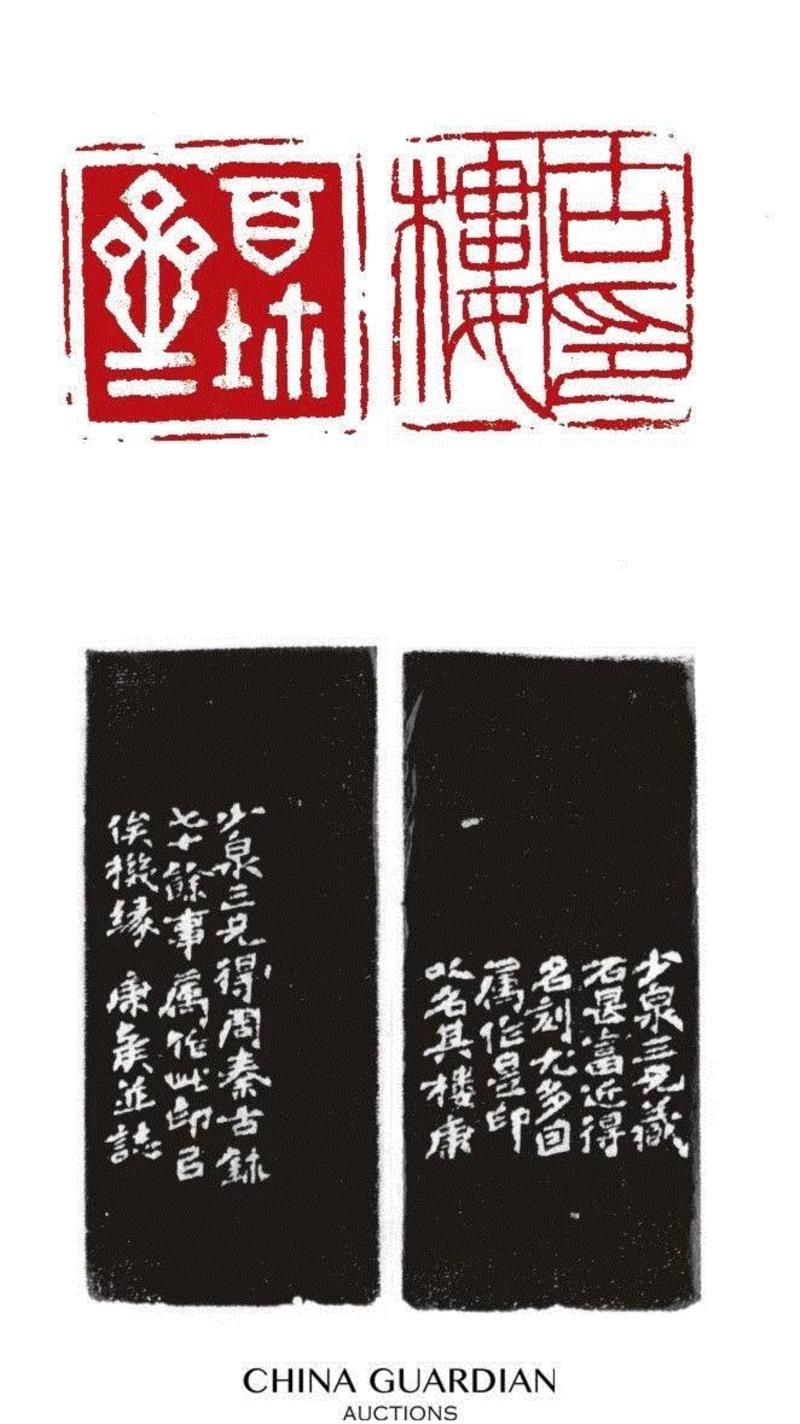 古印
樓
百鉨
齋
少泉三兄藏
石甚富近得
名刻尤多囙
屬作是印
以名其樓康
少泉三兄得周秦古鉨
七十餘事屬作此印㠯
俟機緣 康矦並誌
CHINA GUARDIAN
AUCTIONS